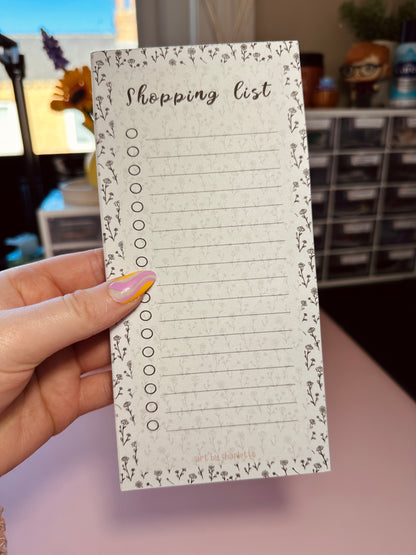 Shopping list
art by sharlotte